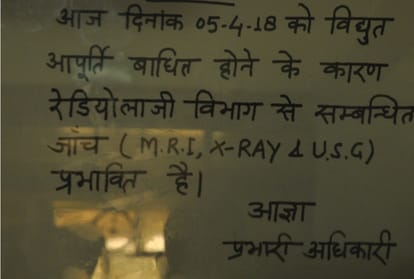 आज दिनांक 05-4-18 को विद्युत
आपूर्ति बाधित होने के कारण
रेडियोलाजी विभाग से सम्बन्धित
जांच ( M.R.I, X-RAY & U.S.G)
प्रभावित है।
आज्ञा
प्रभारी अधिकारी